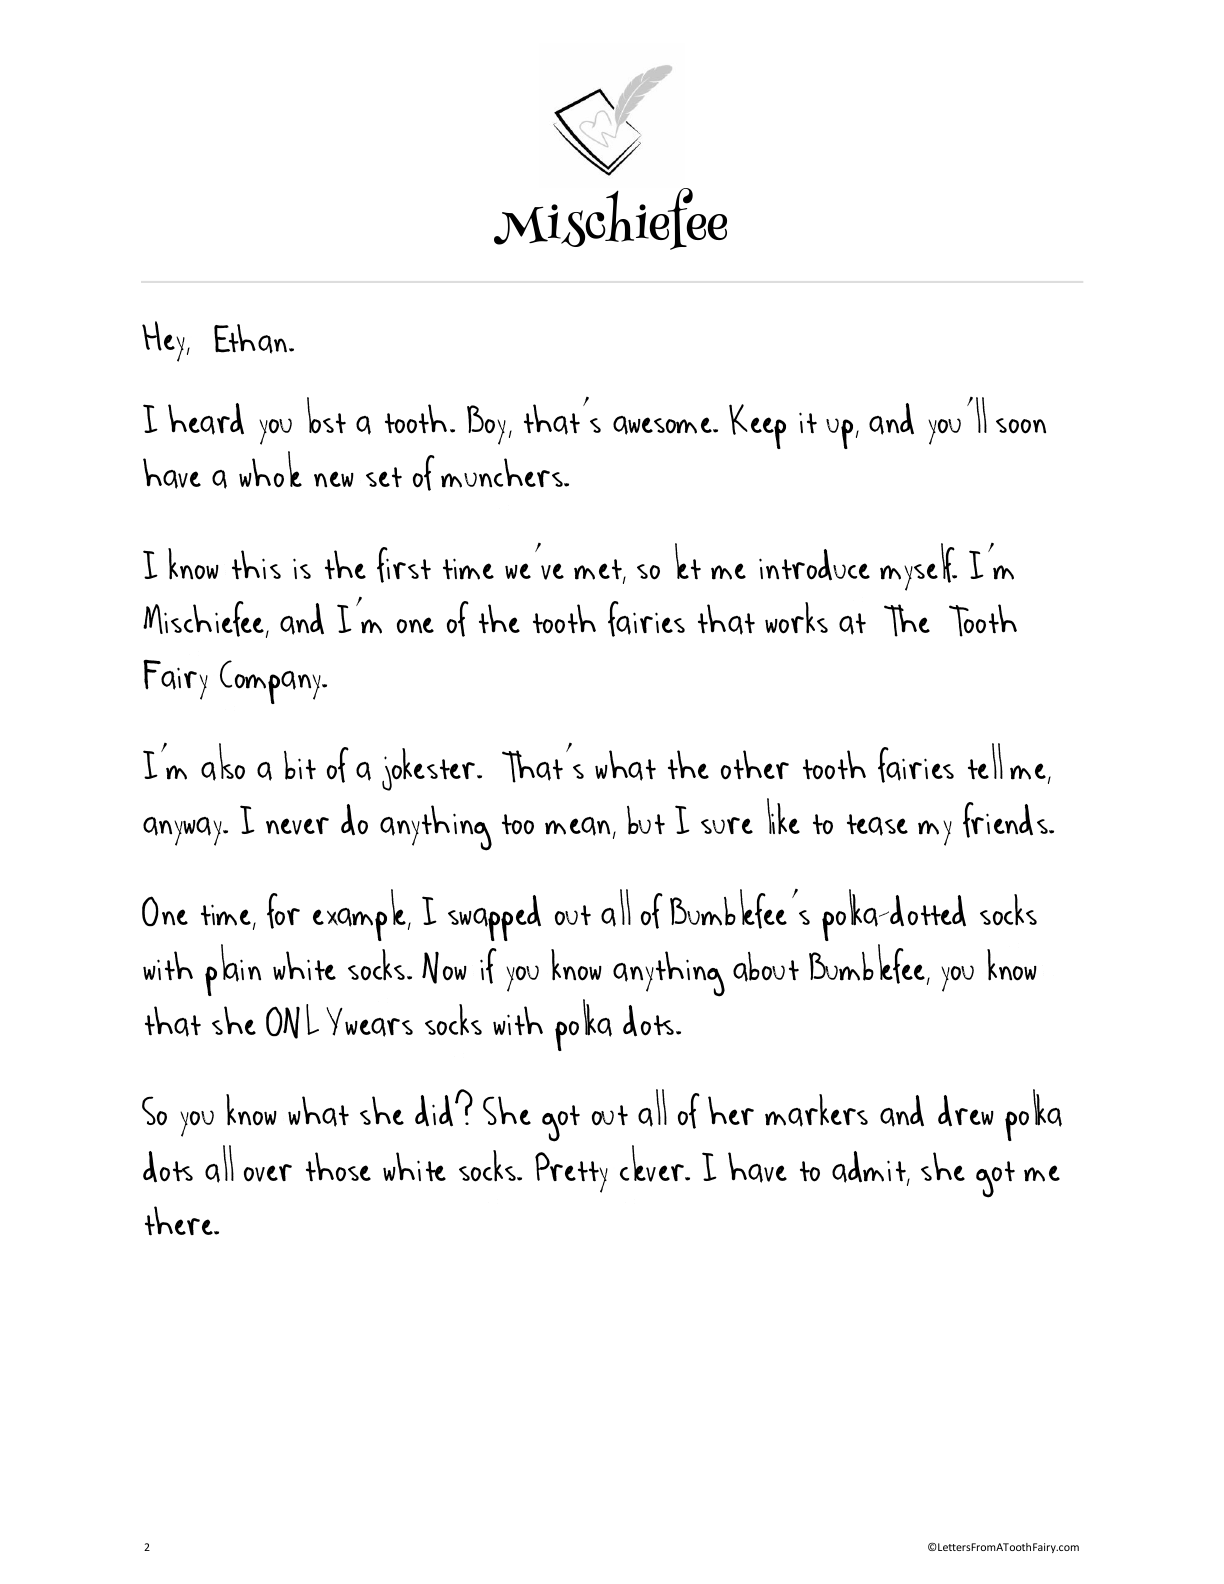 Mischiefee
Hey, Ethan.
I heard you lost a tooth. Boy, that's awesome. Keep it up, and you'll soon
have a whole new set of munchers.
I know this is the first time we've met, so let me introduce myself. I'm
Mischiefee, and I'm one of the tooth fairies that works at The Tooth
Fairy Company.
I'm also a bit of a jokester. That's what the other tooth fairies tell me,
anyway. I never do anything too mean, but I sure like to tease my friends.
One time, for example, I swapped out all of Bumblefee's polka-dotted socks
with plain white socks. Now if you know anything about Bumblefee, you know
that she ONLY wears socks with polka dots.
So you know what she did? She got out all of her markers and drew polka
dots all over those white socks. Pretty clever. I have to admit, she got me
there.
2 ©LettersFromAToothFairy.com